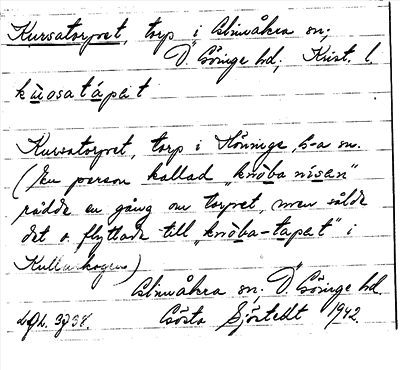 Kursatorpet, torp i Glimåkra sn;
Ö. Göinge hd; Krist. l.
kurosatápat
Kursatorpet, torp i Höninge, G-a sn.
(En person kallad "knöba nisen"
rådde en gång om torpet, men sålde
det o. flyttade till "knöba-tapet" i
Kullaskogen)
Glimåkra sn; Ö. Göinge hd.
Gösta Sjöstedt 1942.